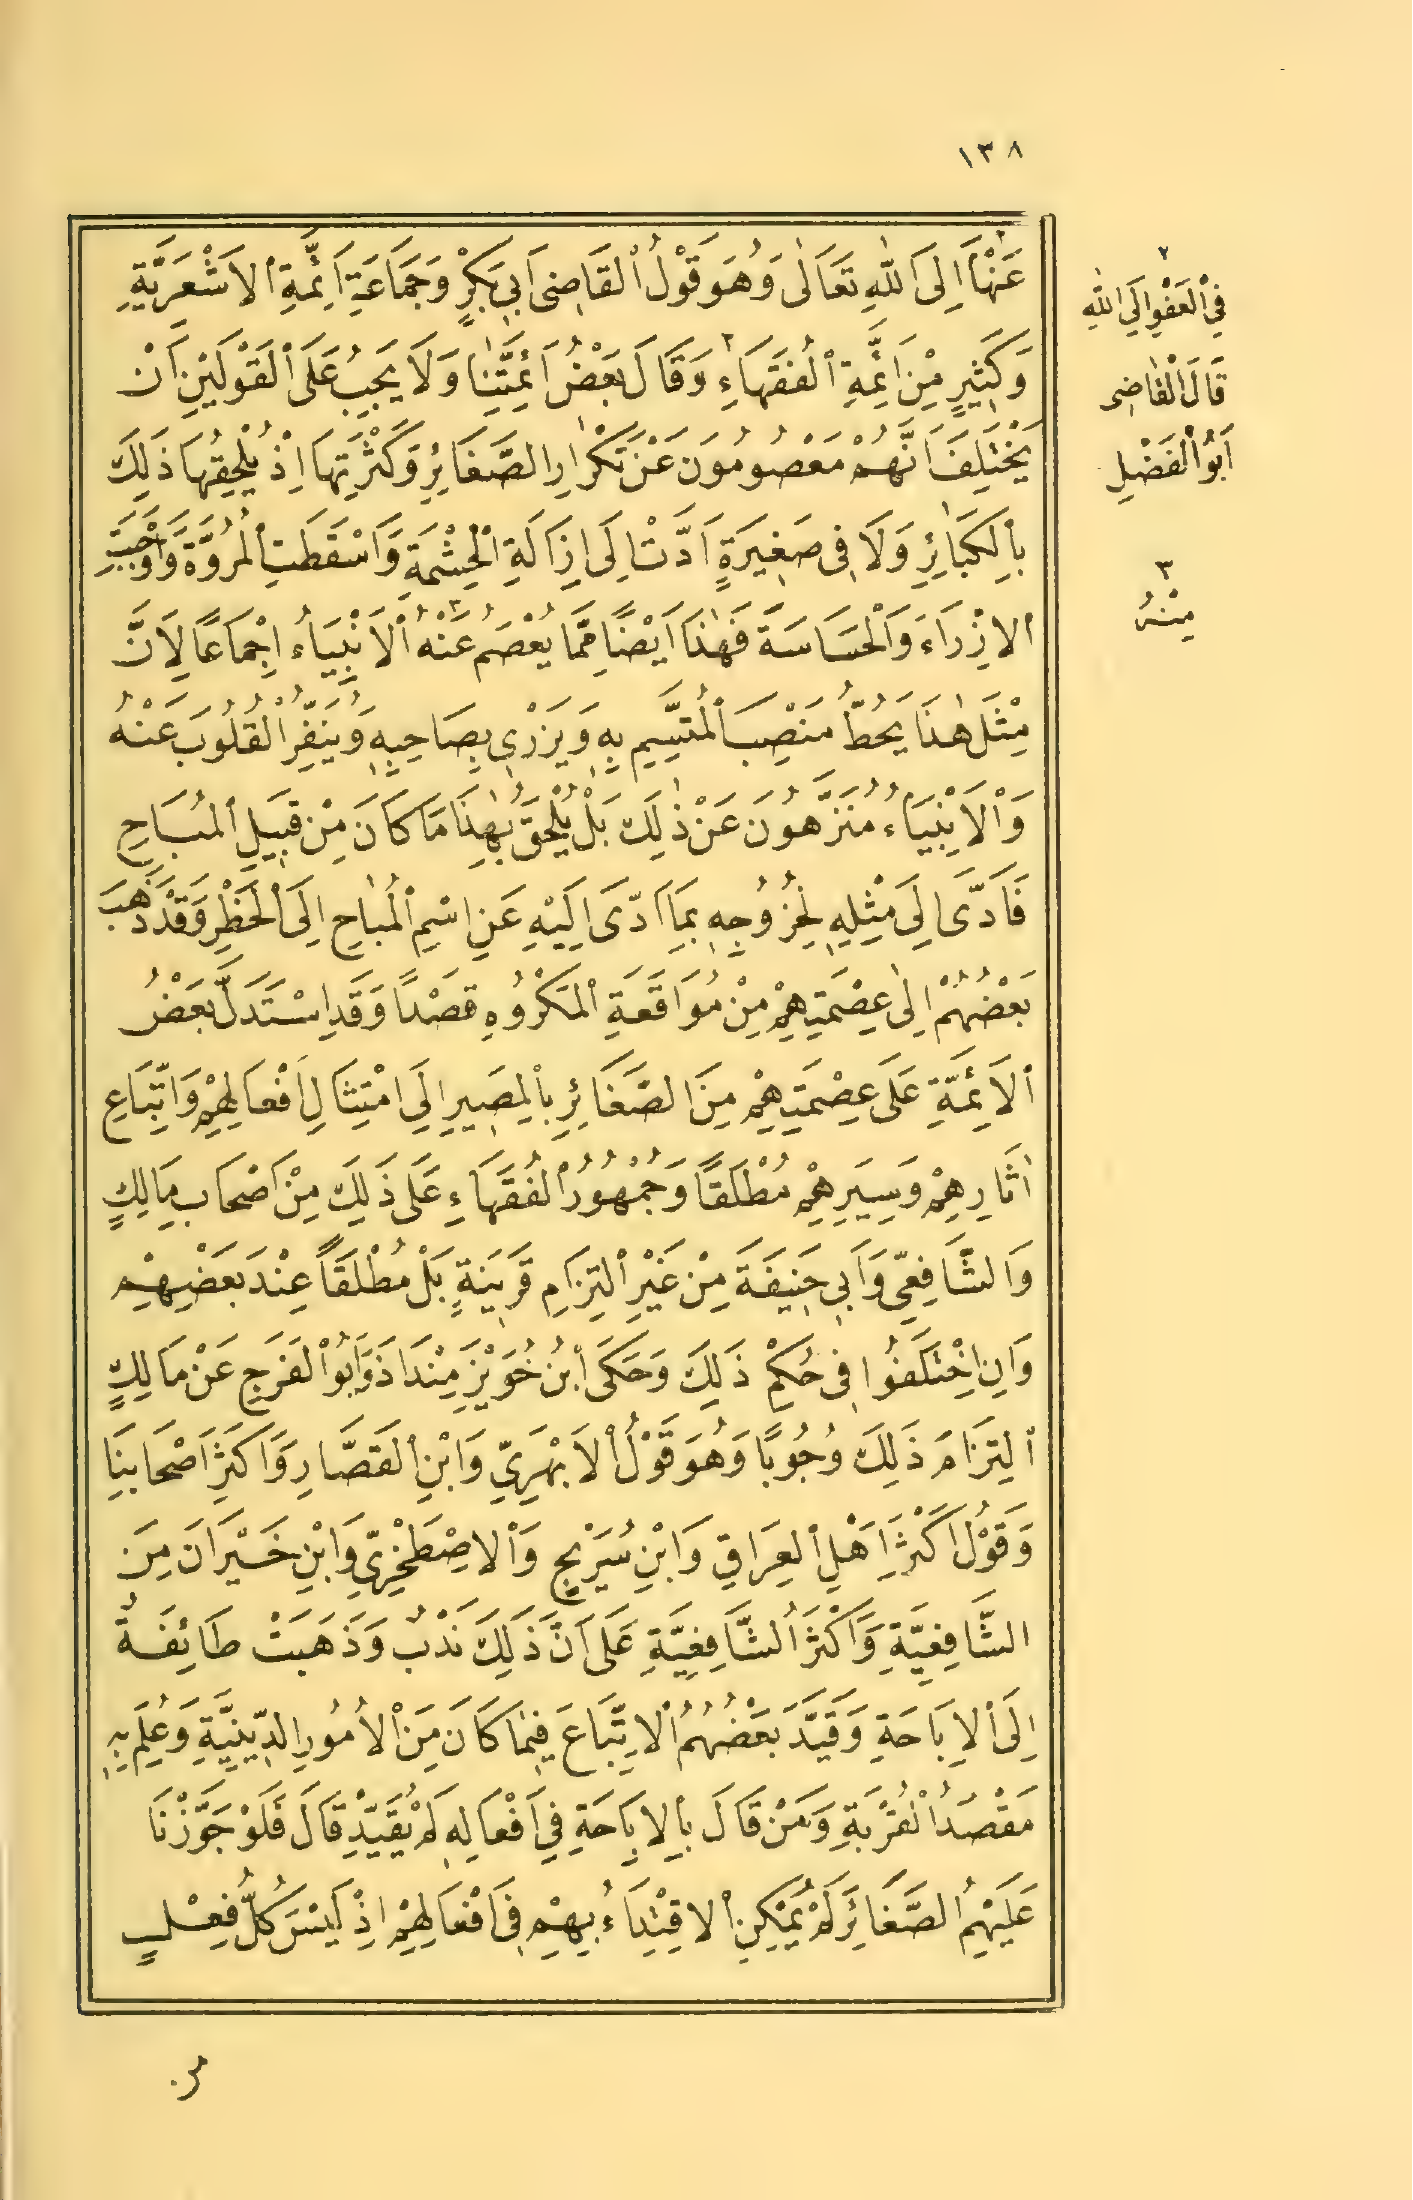 ١٣٨
عَنْهَا اِلَى اللهِ تَعَالٰى وَهُوَ قَوْلُ الْقَاضِى اَبِى بَكْرٍ وَجَمَاعَةِ اَئِمَّةِ الْاَشْعَرِيَّةِ
وَكَثِيرٍ مِنْ اَئِمَّةِ الْفُقَهَاءِ ٢ وَقَالَ بَعْضُ اَئِمَّتِنَا وَلَا يَجِبُ عَلَى الْقَوْلَيْنِ اَنْ
يُخْتَلَفَ اَنَّهُمْ مَعْصُومُونَ عَنْ تَكْرَارِ الصَّغَائِرِ وَكَثْرَتِهَا اِذْ يُلْحِقُهَا ذَلِكَ
بِالْكَبَائِرِ وَلَا فِى صَغِيرَةٍ اَدَّتْ اِلَى اِزَالَةِ الْحِشْمَةِ وَاَسْقَطَتِ الْمُرُوَّةَ وَاَوْجَبَتِ
الْاِزْرَاءَ وَالْخَسَاسَةَ فَهٰذَا اَيْضًا مِمَّا يُعْصَمُ عَنْهُ ٣ الْاَنْبِيَاءُ اِجْمَاعًا لِاَنَّ
مِثْلَ هٰذَا يَحُطُّ مَنْصِبَ الْمُتَّسِمِ بِهِ وَيُزْرِى بِصَاحِبِهِ وَيُنَفِّرُ الْقُلُوبَ عَنْهُ
وَالْاَنْبِيَاءُ مُنَزَّهُونَ عَنْ ذٰلِكَ بَلْ يُلْحَقُ بِهٰذَا مَا كَانَ مِنْ قَبِيلِ الْمُبَاحِ
فَاَدَّى اِلَى مِثْلِهِ لِخُرُوجِهِ بِمَا اَدَّى اِلَيْهِ عَنِ اسْمِ الْمُبَاحِ اِلَى الْحَظْرِ وَقَدْ ذَهَبَ
بَعْضُهُمْ اِلٰى عِصْمَتِهِمْ مِنْ مُوَاقَعَةِ الْمَكْرُوهِ قَصْدًا وَقَدِ اسْتَدَلَّ بَعْضُ
الْاَئِمَّةِ عَلَى عِصْمَتِهِمْ مِنَ الصَّغَائِرِ بِالْمَصِيرِ اِلَى امْتِثَالِ اَفْعَالِهِمْ وَاتِّبَاعِ
اٰثَارِهِمْ وَسِيَرِهِمْ مُطْلَقًا وَجُمْهُورُ الْفُقَهَاءِ عَلَى ذَلِكَ مِنْ اَصْحَابِ مَالِكٍ
وَالشَّافِعِيِّ وَاَبِى حَنِيفَةَ مِنْ غَيْرِ الْتِزَامِ قَرِينَةٍ بَلْ مُطْلَقًا عِنْدَ بَعْضِهِمْ
وَاِنِ اخْتَلَفُوا فِى حُكْمِ ذَلِكَ وَحَكَى ابْنُ خُوَيْزِ مِنْدَاذَ وَاَبُو الْفَرَجِ عَنْ مَالِكٍ
الْتِزَامَ ذَلِكَ وُجُوبًا وَهُوَ قَوْلُ الْاَبْهَرِيِّ وَابْنِ الْقَصَّارِ وَاَكْثَرِ اَصْحَابِنَا
وَقَوْلُ اَكْثَرِ اَهْلِ الْعِرَاقِ وَابْنِ سُرَيْجٍ وَالْاِصْطَخْرِيِّ وَابْنِ خَيْرَانَ مِنَ
الشَّافِعِيَّةِ وَاَكْثَرُ الشَّافِعِيَّةِ عَلَى اَنَّ ذَلِكَ نَدْبٌ وَذَهَبَتْ طَائِفَةٌ
اِلَى الْاِبَاحَةِ وَقَيَّدَ بَعْضُهُمُ الْاِتِّبَاعَ فِيمَا كَانَ مِنَ الْاُمُورِ الدِّينِيَّةِ وَعُلِمَ بِهِ
مَقْصَدُ الْقُرْبَةِ وَمَنْ قَالَ بِالْاِبَاحَةِ فِى اَفْعَالِهِ لَمْ يُقَيِّدْ قَالَ فَلَوْ جَوَّزْنَا
عَلَيْهِمُ الصَّغَائِرَ لَمْ يُمْكِنِ الْاِقْتِدَاءُ بِهِمْ فِى اَفْعَالِهِمْ اِذْ لَيْسَ كُلُّ فِعْلٍ
٢
فِى الْعَفْوِ اِلَى اللهِ
قَالَ الْقَاضِى
اَبُو الْفَضْلِ
٣
مِنْهُ